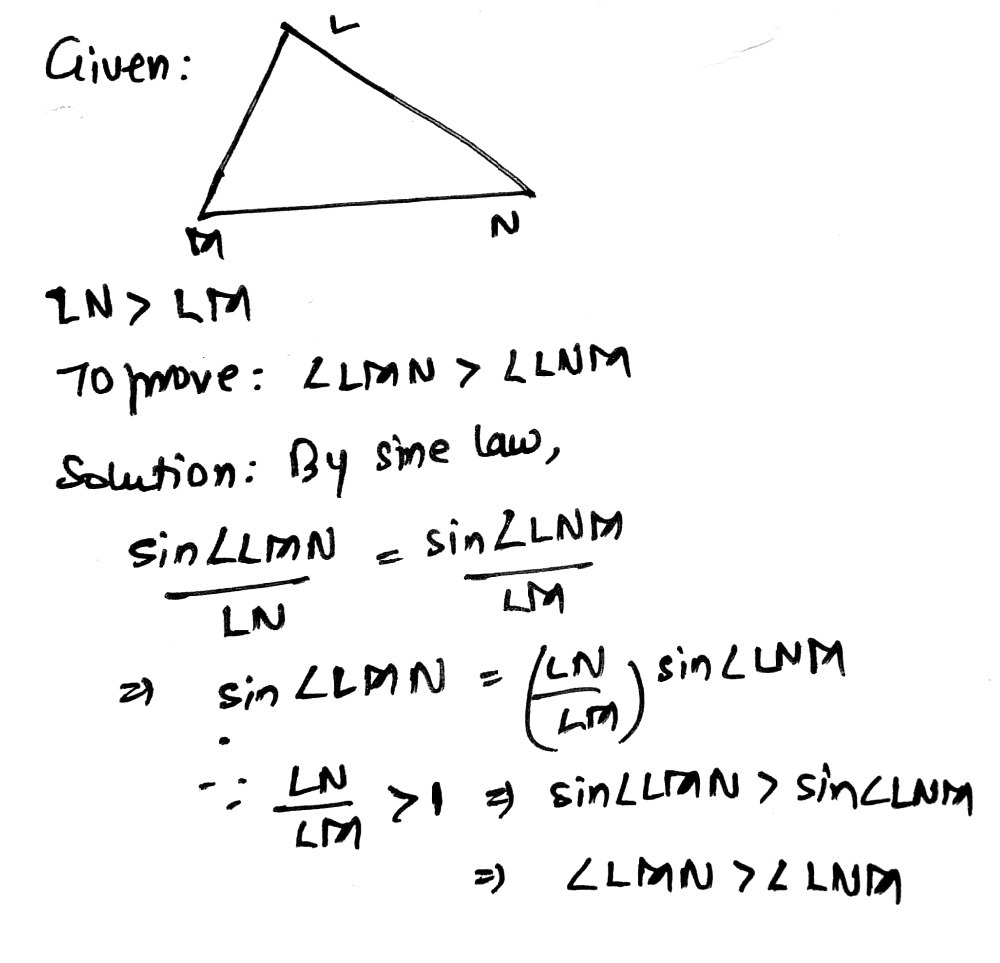 L
Given:
M N
LN > LM
To prove: ∠LMN > ∠LNM
Solution: By sine law,
sin∠LMN / LN = sin∠LNM / LM
⇒ sin∠LMN = (LN / LM) sin∠LNM
∵ LN / LM > 1 ⇒ sin∠LMN > sin∠LNM
⇒ ∠LMN > ∠LNM